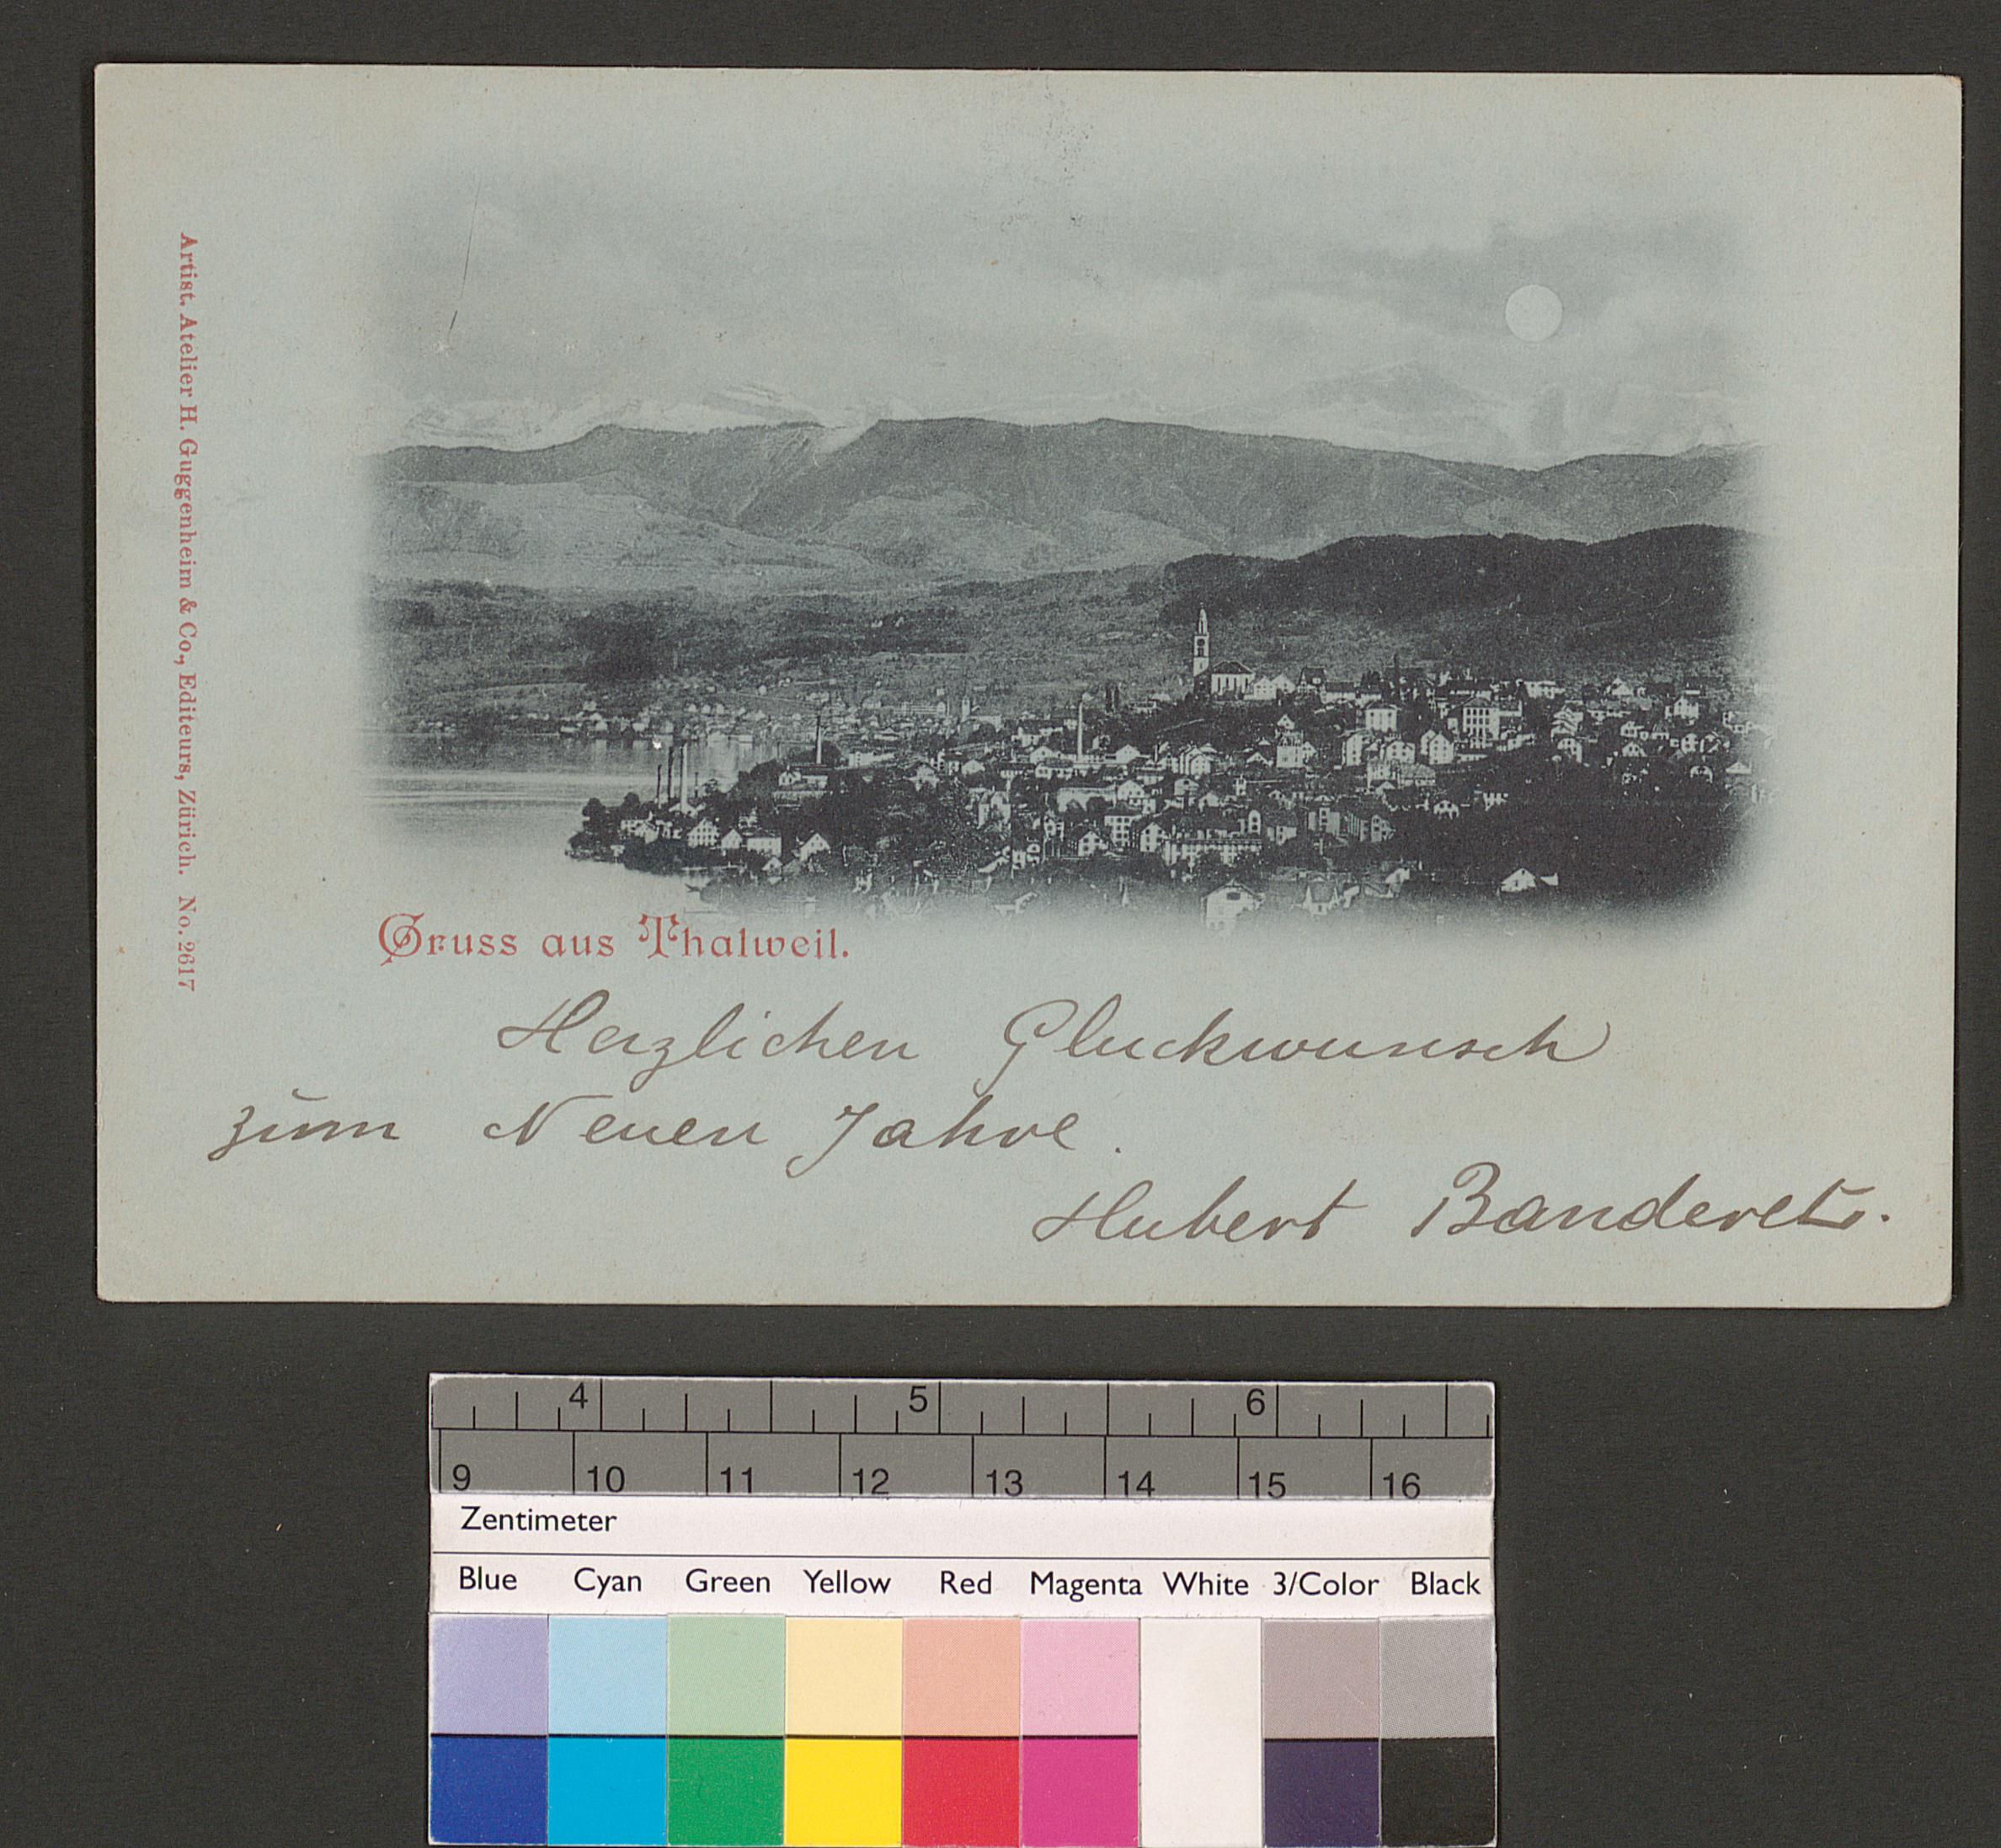 Artist. Atelier H. Guggenheim & Co., Editeurs, Zürich. No. 2617
Gruss aus Thalweil.
Herzlichen Gluckwunsch
zum Neuen Jahre.
Hubert Banderet.
4 5 6
9 10 11 12 13 14 15 16
Zentimeter
Blue Cyan Green Yellow Red Magenta White 3/Color Black